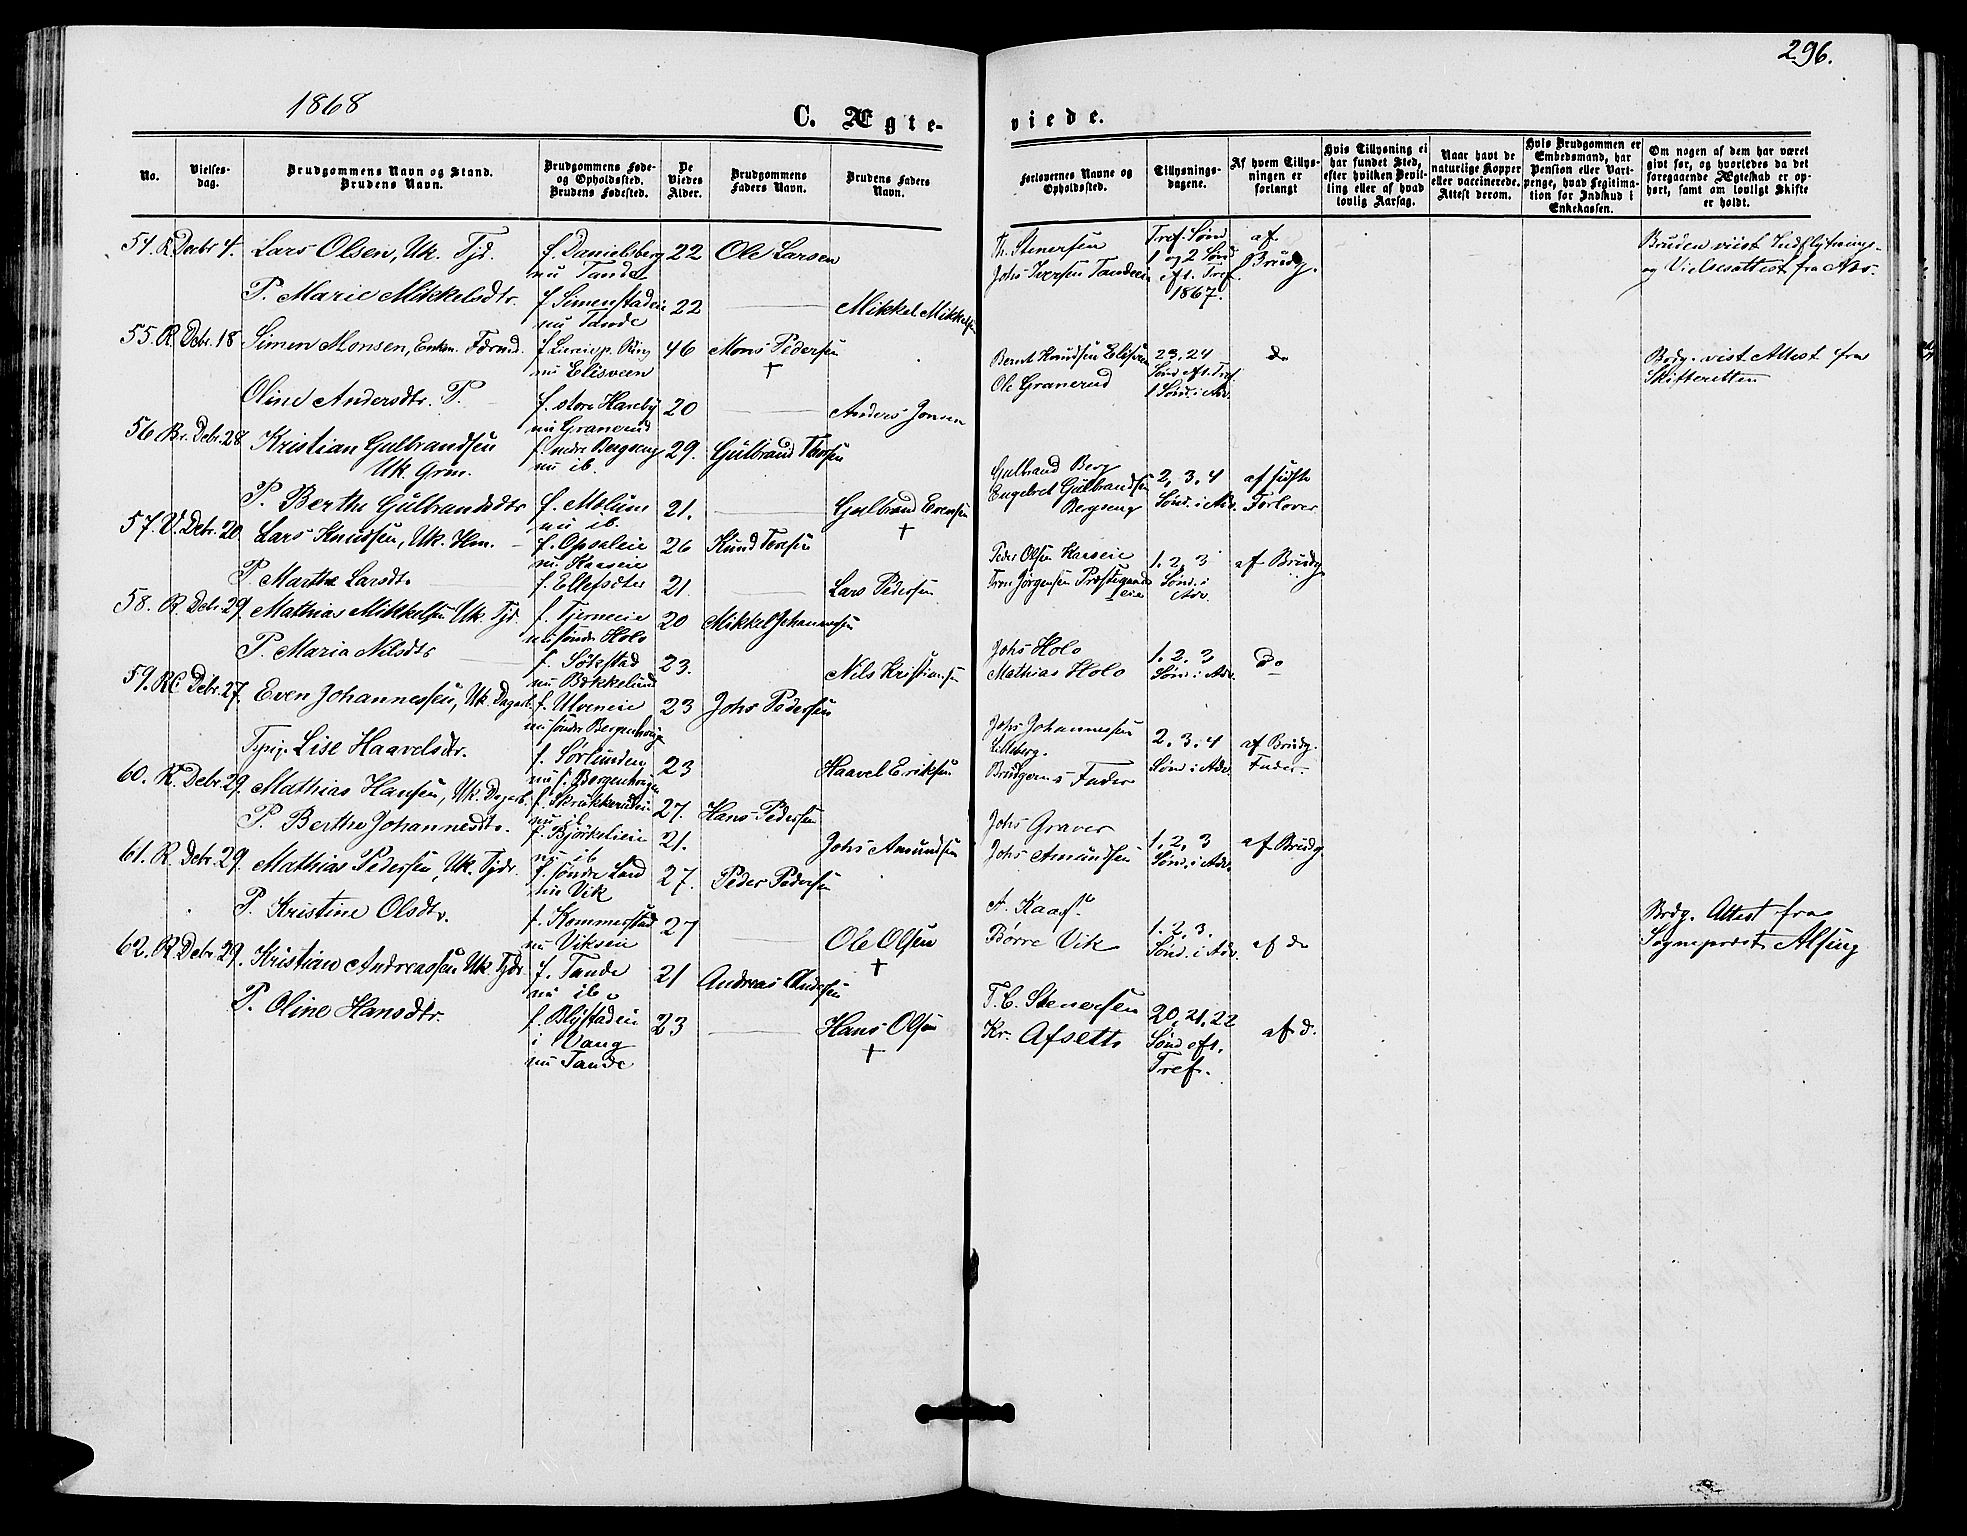 296.
1868
C. Ægte-
viede.
No.
Vielses-
dag.
Brudgommens Navn og Stand.
Brudens Navn.
Brudgommens Føde-
og Opholdssted.
Brudens Fødested.
De
Viedes
Alder.
Brudgommens
Faders Navn.
Brudens Faders
Navn.
Forlovernes Navne og
Opholdssted.
Tillysnings-
dagene.
Af hvem Tillys-
ningen er
forlangt
Hvis Tillysning ei
har fundet Sted,
efter hvilken Bevil-
ling eller af hvad
lovlig Aarsag.
Naar havt de
naturlige Kopper
eller vaccinerede.
Attest derom.
Hvis Brudgommen er
Embedsmand, har
Pension eller Vart-
penge, hvad Legitima-
tion for Indskud i
Enkekassen.
Om nogen af dem har været
givt før, og hvorledes da det
foregaaende Ægteskab er op-
hørt, samt om lovligt Skifte
er holdt.
54. R. Decbr 4. Lars Olsen, Uk. Tjd. f. Danielsberg 22 Ole Larsen
nu Tande
Th. Stenersen
Johs Iversen Tandeeie
Tref. Sønd
1 og 2 Sønd
eft. Tref.
1867.
af
Brudg.
Bruden viist Indflytnings-
og Vielsesattest fra Næs.
P. Marie Mikkelsdtr. f. Simenstadeie 22 Mikkel Mikkelsen
nu Tande
55. R. Debr. 18 Simen Monsen, Enkm. 46 Mons Pedersen
nu Elisveen †
Bernt Knudsen Elisveen
Ole Granerud
23, 24
Sønd. eft. Tref
1 Sønd. i Adv.
do
Brdg. vist Attest fra
Skifteretten
Oline Andersdtr. P. f. store Haneby 20 Anders Jonsen
nu Granerud
56 Br. Debr. 28 Kristian Gulbrandsen f. nedre Bergseng 29. Gulbrand Thorsen
Uk. Grm. nu ib.
Gulbrand Berg
Engebret Gulbrandsen
Bergseng
2, 3, 4
Sønd. i Adv.
af sidste
Forlover
P. Berthe Gulbrandsdtr f. Molum 21. Gulbrand Evensen
nu ib. †
57. V. Debr. 20 Lars Knudsen, Uk. Hm. f. Opsaleie 26 Knud Toresen
nu Kaaseie
Peder Olsen Kaaseie
Iven Jørgensen Præstegaards
eie
1. 2, 3
Sønd. i
Adv.
af Brudg
P. Marthe Larsdtr. f. Ellefsdter 21. Lars Pedersen
58. R. Debr. 29. Mathias Mikkelsen Uk. Tjd. f. Tjerneeie 20 Mikkel Johannesen
nu søndre Holo
Johs Holo
Mathias Holo
1. 2. 3
Sønd. i Adv.
Do
P. Maria Nilsdtr f. Søkstad 23. Nils Kristiansen
nu Bækkelund
59. RC. Debr. 27. Even Johannessen, Uk. Dagarb. f. Ulveneie 23 Johs Pedersen
nu søndre Bergenhøug
Johs Johannessen
Lilleberg.
Brudgoms Fader
2. 3. 4
Sønd. i Adv.
af Brudg.
Fader.
Lise Haavelsdtr. f. Sørlunden 23 Haavel Eriksen
60. R. Debr. 29. Mathias Hansen, Uk. Dagarb. f. Skrukkerudeie 27. Hans Pedersen
nu ib
Johs Graver
Johs Amundsen
1. 2, 3
Sønd. i Adv.
af Brudg
P. Berthe Johannesdtr. f. Bjørkelieie 21. Johs Amundsen
nu ib
61. R. Debr. 29. Mathias Pedersen, Uk. Tjdr. f. søndre Land 27. Peder Pedersen
nu Vik
A. Kaas
Børre Vik
1. 2. 3.
Sønd. i Adv.
af do
Brdg. Attest fra
Sogneprest Alsing
P. Kristine Olsdtr. f. Kommerstad 27 Ole Olsen
nu Vikseie †
62. R. Debr. 29. Kristian Andreassen Uk. Tjdr. f. Tande 21 Andreas Andersen
nu ib.
T. C. Stenersen
Kr. Afsetts
20, 21, 22
Sønd. eft.
Tref.
af d.
P. Oline Hansdtr. f. Blystadeie 23 Hans Olsen
i Vang †
nu Tande